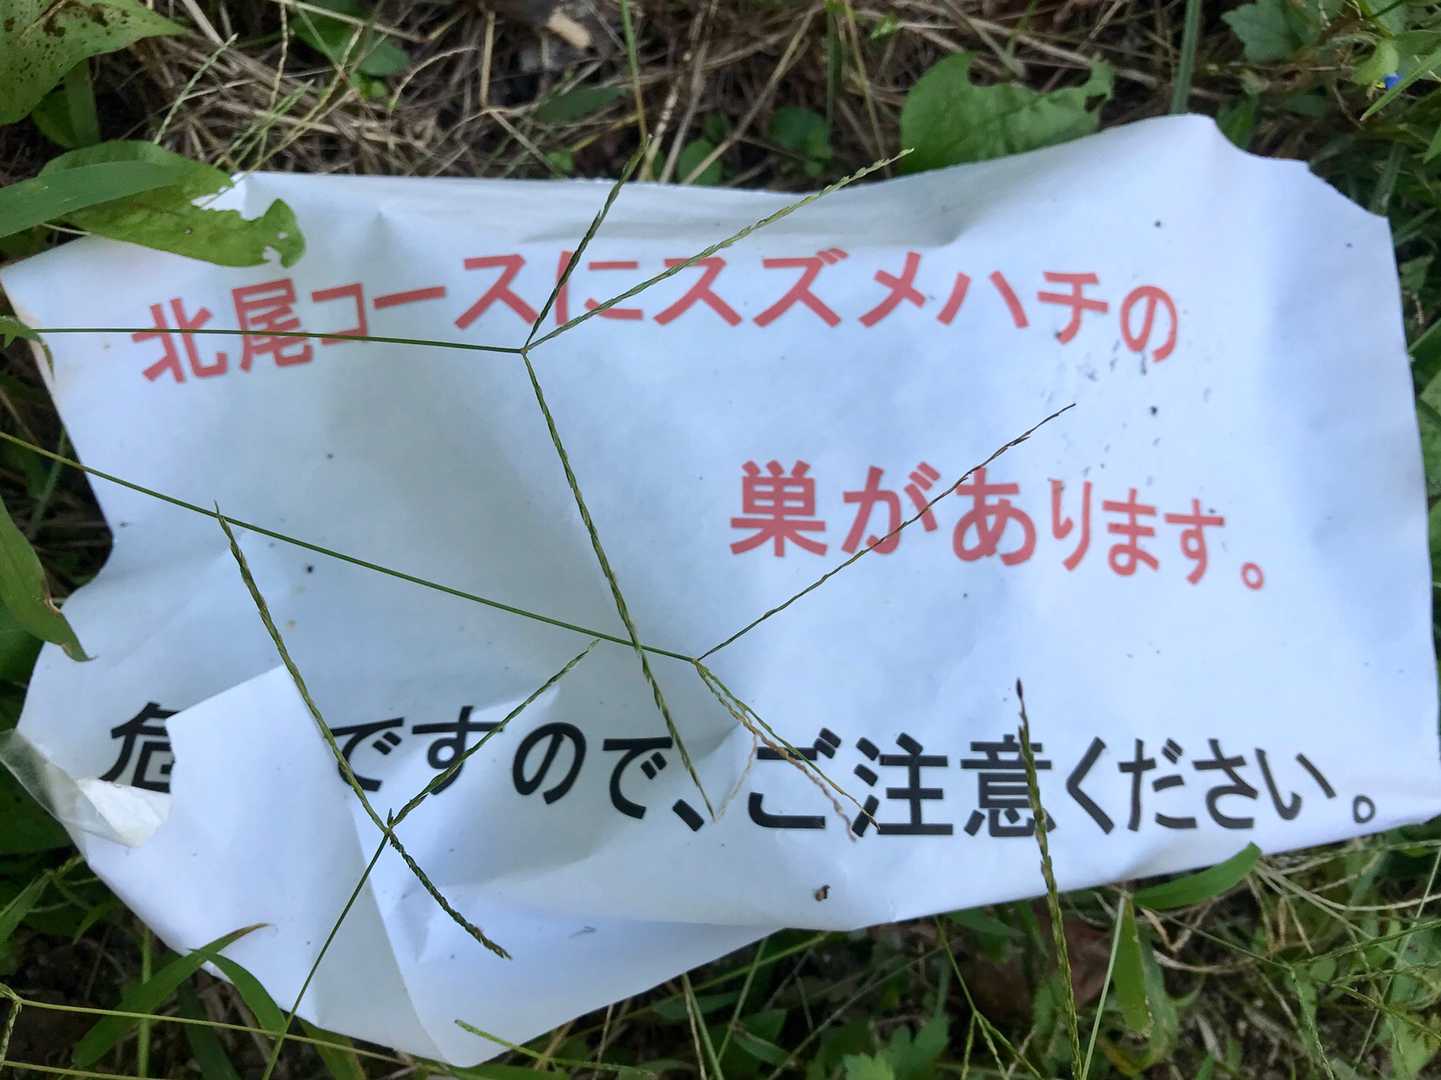 北尾コースにスズメハチの
巣があります。
危ですので、ご注意ください。